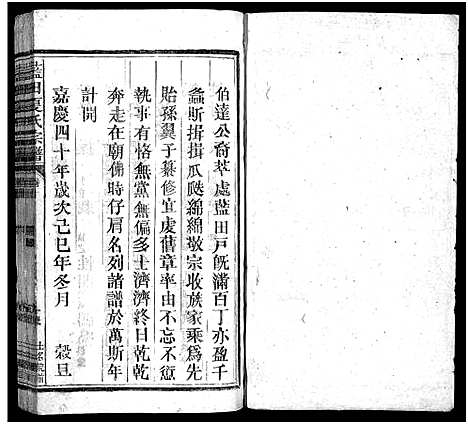 伯達公裔萃處藍田戶既滿百丁亦盈千
螽斯揖揖瓜瓞綿綿敬宗收族家乘為先
貽孫翼子纂修宜處舊章率由不忘不愆
執事有恪無黨無偏多士濟濟終日乾乾
奔走在朝備時仔肩名列諸譜於萬斯年
計開
嘉慶四十年歲次己巳年冬月 穀旦
藍田夏氏宗譜